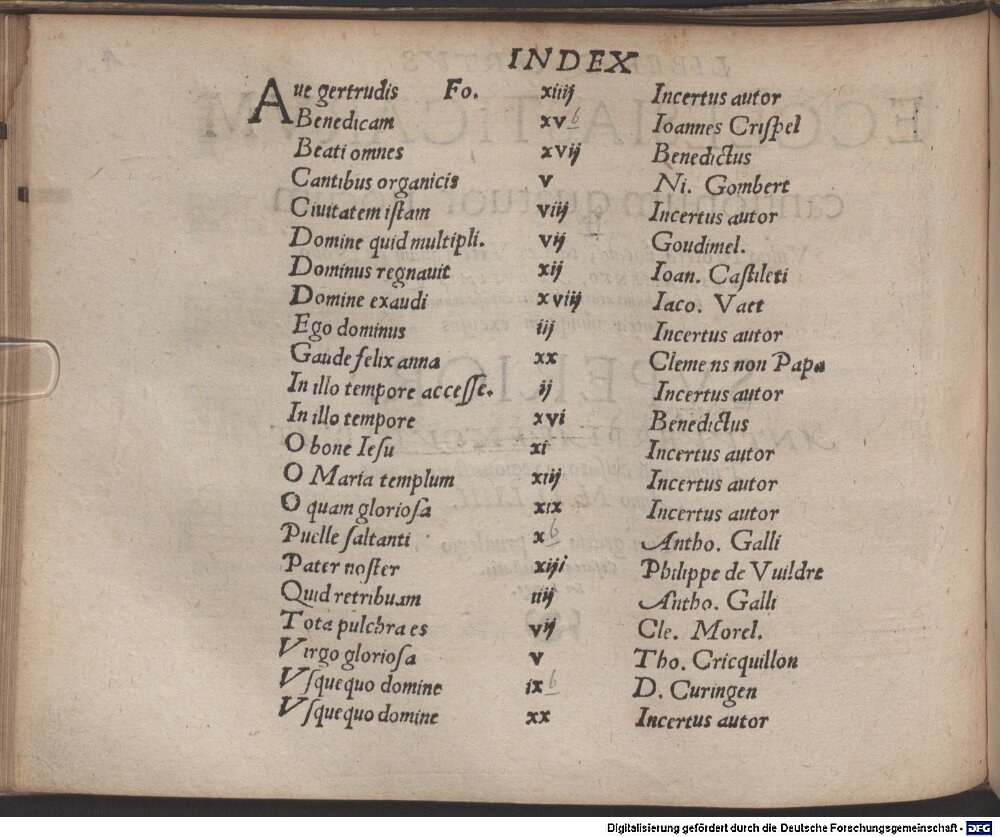 INDEX
Aue gertrudis Fo. xiiij Incertus autor
Benedicam xv b Ioannes Crispel
Beati omnes xvij Benedictus
Cantibus organicis v Ni. Gombert
Ciuitatem istam viij Incertus autor
Domine quid multipli. vij Goudimel.
Dominus regnauit xij Ioan. Castileti
Domine exaudi xviij Iaco. Vaet
Ego dominus iij Incertus autor
Gaude felix anna xx Clemens non Papa
In illo tempore accesse. ij Incertus autor
In illo tempore xvi Benedictus
O bone Iesu xi Incertus autor
O Maria templum xiij Incertus autor
O quam gloriosa xix Incertus autor
Puelle saltanti x b Antho. Galli
Pater noster xiij Philippe de Vuildre
Quid retribuam iiij Antho. Galli
Tota pulchra es vij Cle. Morel.
Virgo gloriosa v Tho. Cricquillon
Vsquequo domine ix b D. Curingen
Vsquequo domine xx Incertus autor
Digitalisierung gefördert durch die Deutsche Forschungsgemeinschaft - DFG